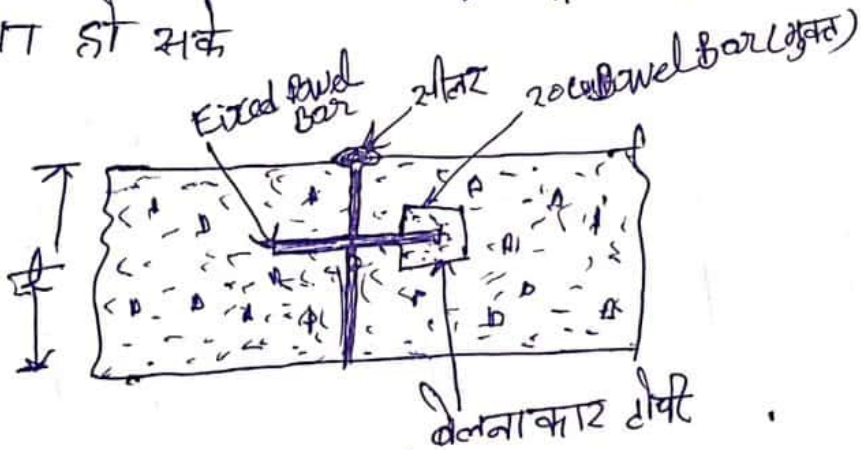 हो सके
Fixed Dowel
Bar
सीलर
Dowel Bar (मुक्त)
बेलनाकार टोपी